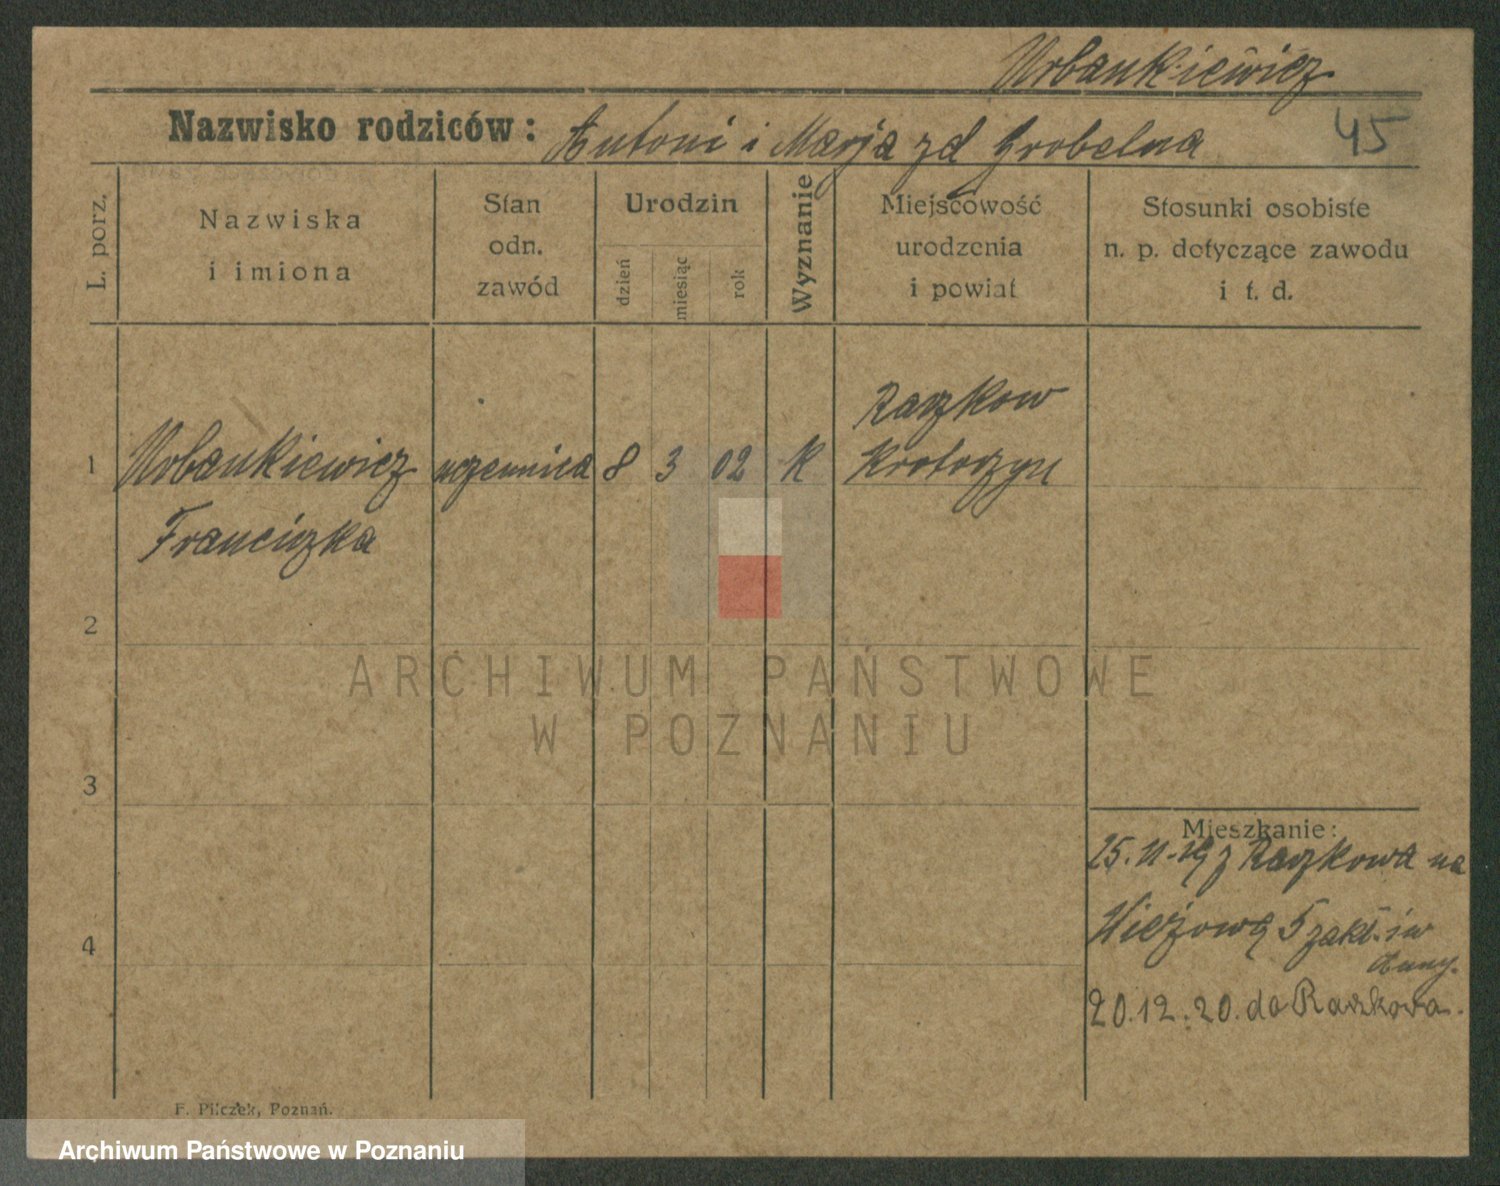 Urbankiewicz
Nazwisko rodziców: Antoni i Marja zd Grobelna
45
L. porz.
Nazwiska
i imiona
Stan
odn.
zawód
Urodzin
dzień
miesiąc
rok
Wyznanie
Miejscowość
urodzenia
i powiat
Stosunki osobiste
n. p. dotyczące zawodu
i t. d.
1
Urbankiewicz
Franciszka
uczennica
8
3
02
K
Raszkow
Krotoszyn
2
3
4
Mieszkanie:
25.11.19 z Raszkowa na
Wieżową 5 zakł. św
Anny.
20.12.20. do Raszkowa.
F. Pilczek, Poznań.
ARCHIWUM PAŃSTWOWE
W POZNANIU
Archiwum Państwowe w Poznaniu